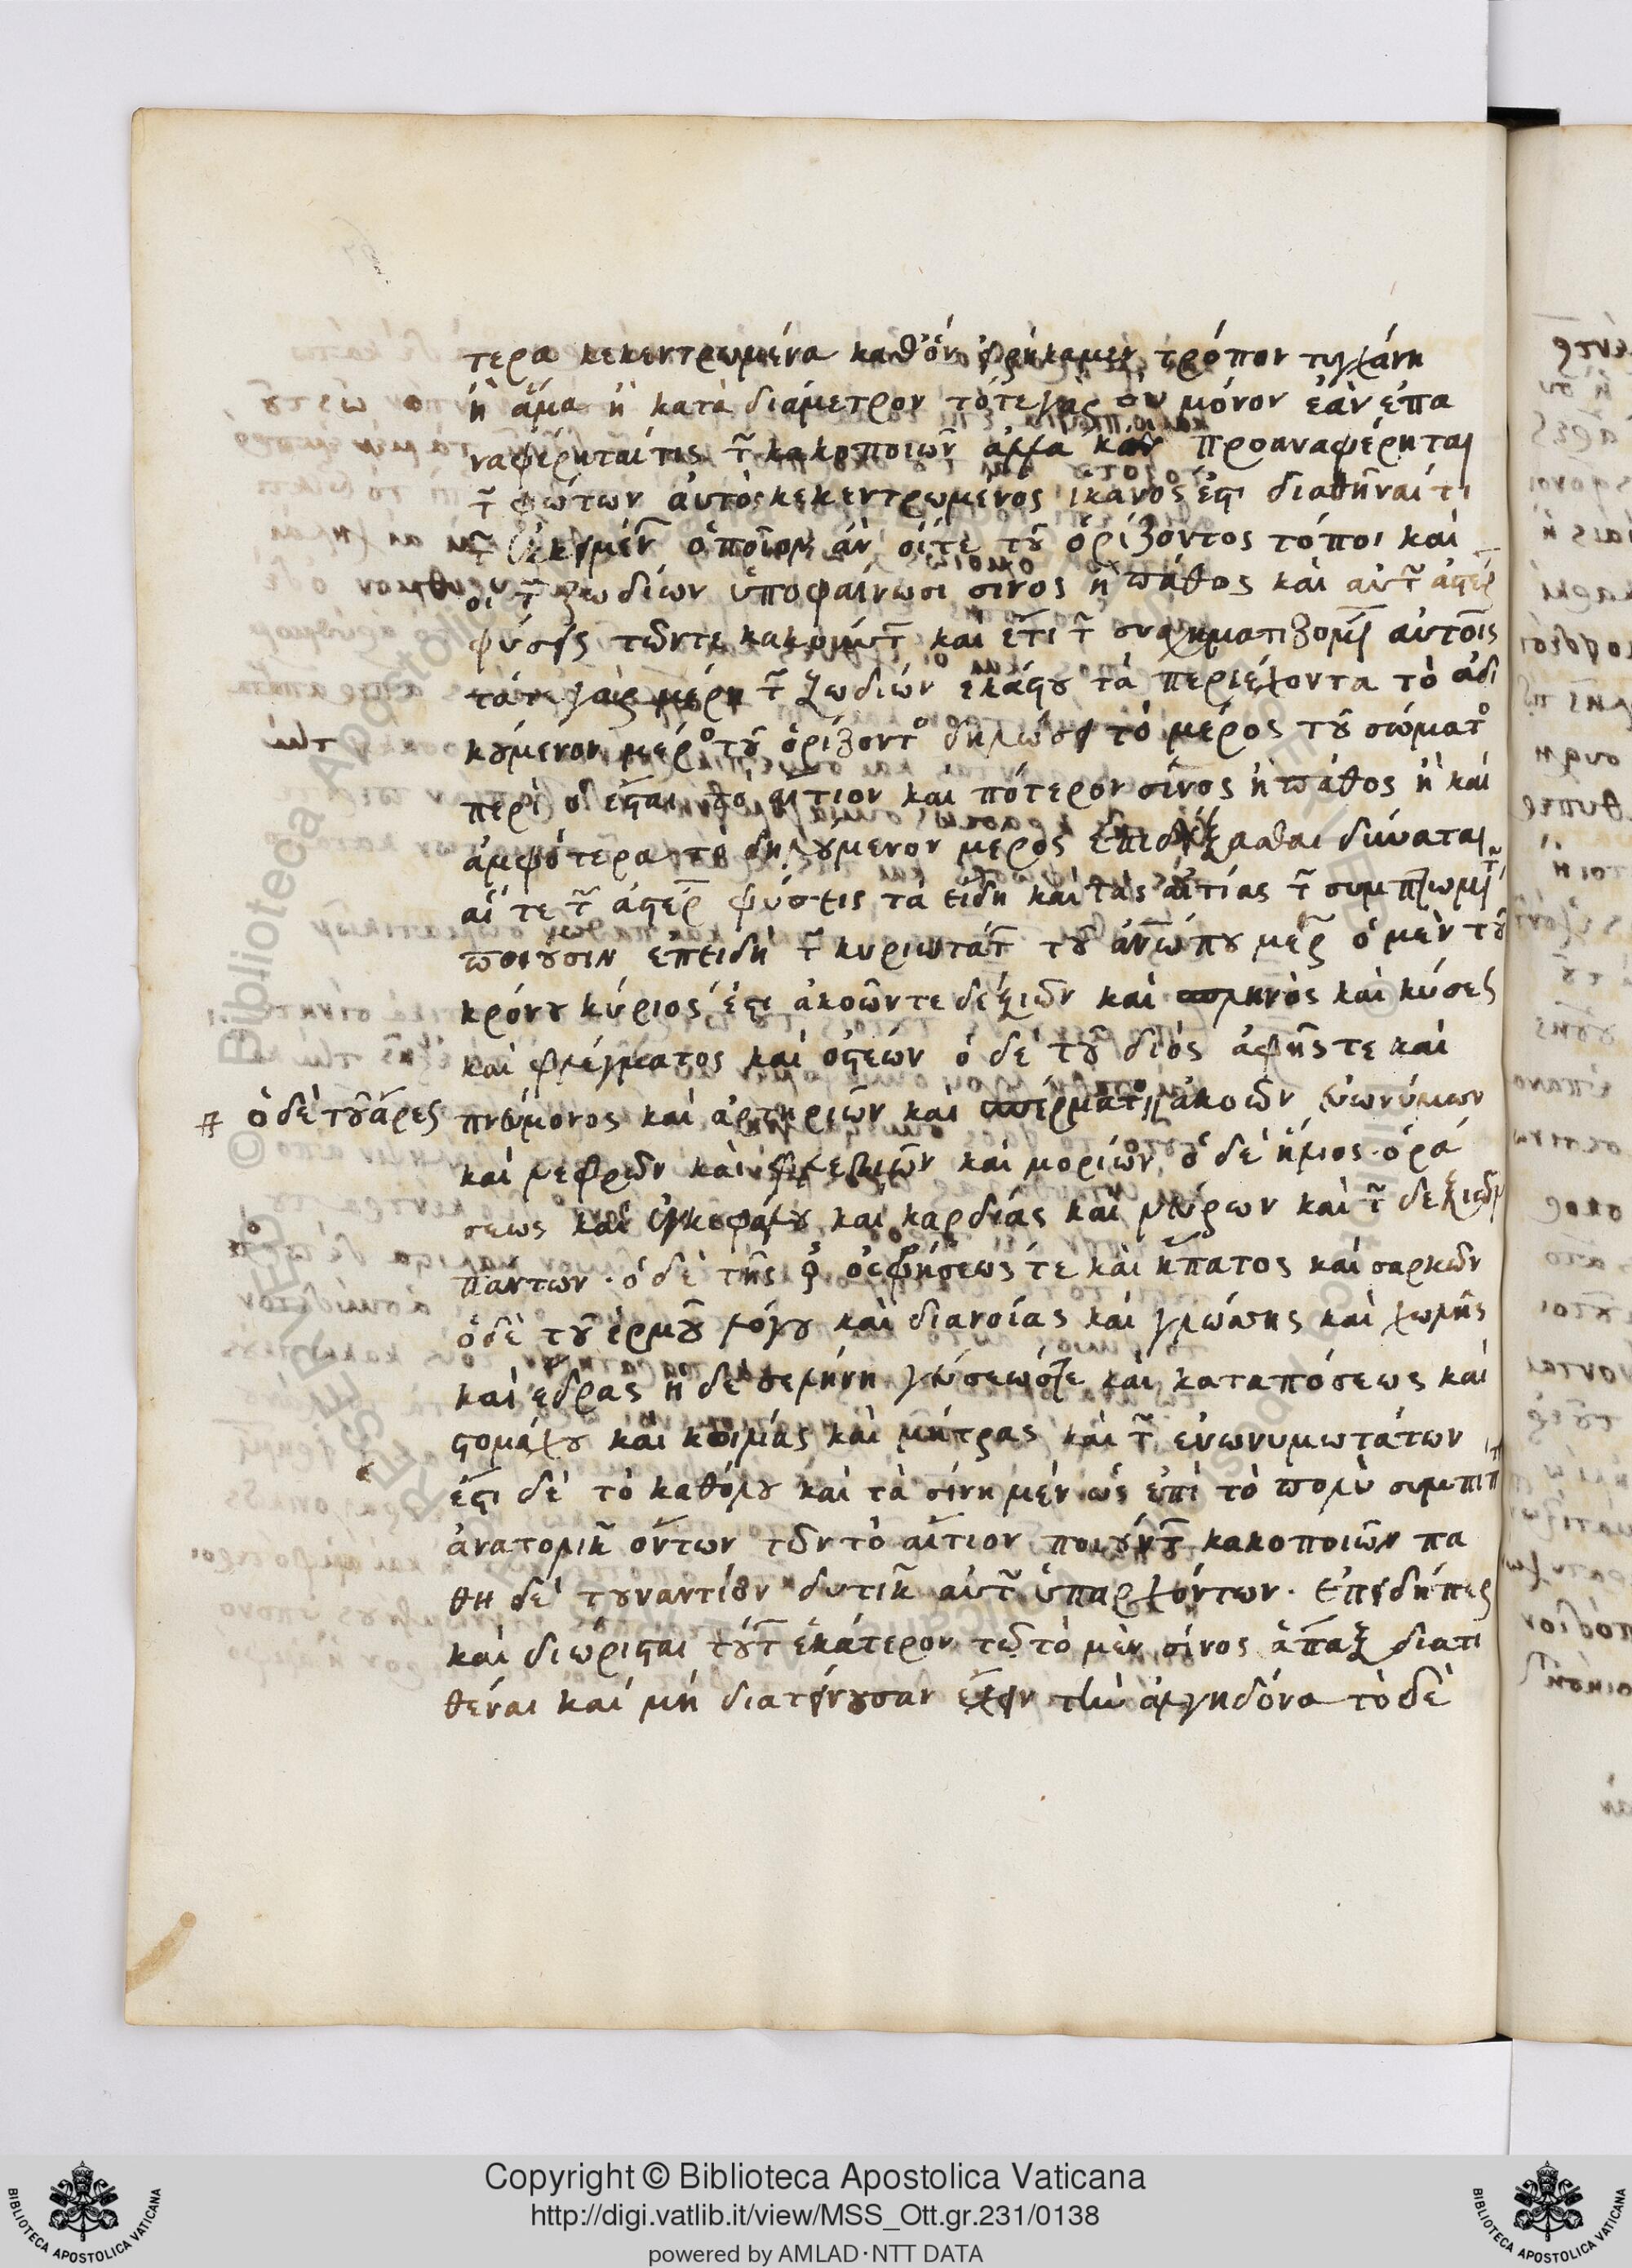 τερα κεκεντρωμένα καθ' όν εἰρήκαμεν τρόπον τυγχάνη
ἢ ἅμα ἢ κατὰ διάμετρον τότε γὰρ οὐ μόνον ἐὰν ἐπα
ναφέρηταί τις τ̃ κακοποιῶν ἀλλὰ κἂν προαναφέρηται
τ̃ φώτων αὐτὸς κεκεντρωμένος ἱκανός ἐστι διαθῆναί τι
τ̃ ἐκκειμέν ὁποῖον ἂν οἵτε τοῦ ὁρίζοντος τόποι καὶ
οἱ τ̃ ζωδίων ὑποφαίνωσι σίνος ἢ πάθος καὶ αὐτ̃ ἀστέρ
φύσεις τῶντε κακούντ̃ καὶ ἔτι τ̃ συσχηματιζομέν αὐτοῖς
τά τε γὰρ μέρη τ̃ ζωδιών ἑκάστου τὰ περιέχοντα τὸ ἀδι
κούμενον μέρο τοῦ ὁρίζοντο δηλώσει τὸ μέρος τοῦ σώματο
περὶ ὃ ἔσται τὸ αἴτιον καὶ πότερον σῖνος ἢ πάθος ἢ καὶ
ἀμφότερα τὸ δηλούμενον μέρος ἐπιδέξασθαι δύναται
αἵ τε τ̃ ἀστέρ φύσεις τὰ εἴδη καὶ τὰς αἰτίας τ̃ συμπτωμ
ποιοῦσιν ἐπειδὴ τ̃ κυριωτάτ τοῦ ἀνώπου μερ ὁ μὲν τοῦ
κρόνου κύριός ἐστι ἀκοῶντε δεξιῶν καὶ σπληνὸς καὶ κύστεως
καὶ φλέγματος καὶ ὀστέων ὁ δὲ τοῦ διὸς ἁφῆς τε καὶ
πνεύμονος καὶ ἀρτηριῶν καὶ σπέρματο ἀκοῶν εὐωνύμων
ὁ δὲ τοῦ άρεως
καὶ νεφρῶν καὶ φλεβιῶν καὶ μοριών ὁ δὲ ἥλιος ὁρά
σεως καὶ ἐγκεφάλου καὶ καρδίας καὶ νεύρων καὶ τ̃ δεξιῶν
πάντων · ὁ δὲ τῆς ♀ ὀσφρήσεώς τε καὶ ἥπατος καὶ σαρκῶν
ὁ δὲ τοῦ ἑρμοῦ λόγου καὶ διανοίας καὶ γλώσσης καὶ χολῆς
καὶ ἕδρας ἡ δὲ σελήνη γεύσεώς τε καὶ καταπόσεως καὶ
στομάχου καὶ κοιλίας καὶ μήτρας καὶ τ̃ εὐωνυμωτάτων
ἔστι δὲ τὸ καθόλου καὶ τὰ σίνη μὲν ὡς ἐπὶ τὸ πολὺ συμπιπ
ἀνατολικ̃ ὄντων τῶν τὸ αἴτιον ποιούντ̃ κακοποιῶν πα
θη δὲ τοὐναντίον δυτικ̃ αὐτ̃ ὑπαρχόντων · ἐπειδήπερ
καὶ διώρισται τούτ̃ ἑκάτερον τῷ τὸ μὲν σίνος ἅπαξ διατι
θέναι καὶ μὴ διατείνουσαν ἔχειν τὴν ἀλγηδόνα τὸ δὲ
Copyright © Biblioteca Apostolica Vaticana
http://digi.vatlib.it/view/MSS_Ott.gr.231/0138
powered by AMLAD·NTT DATA